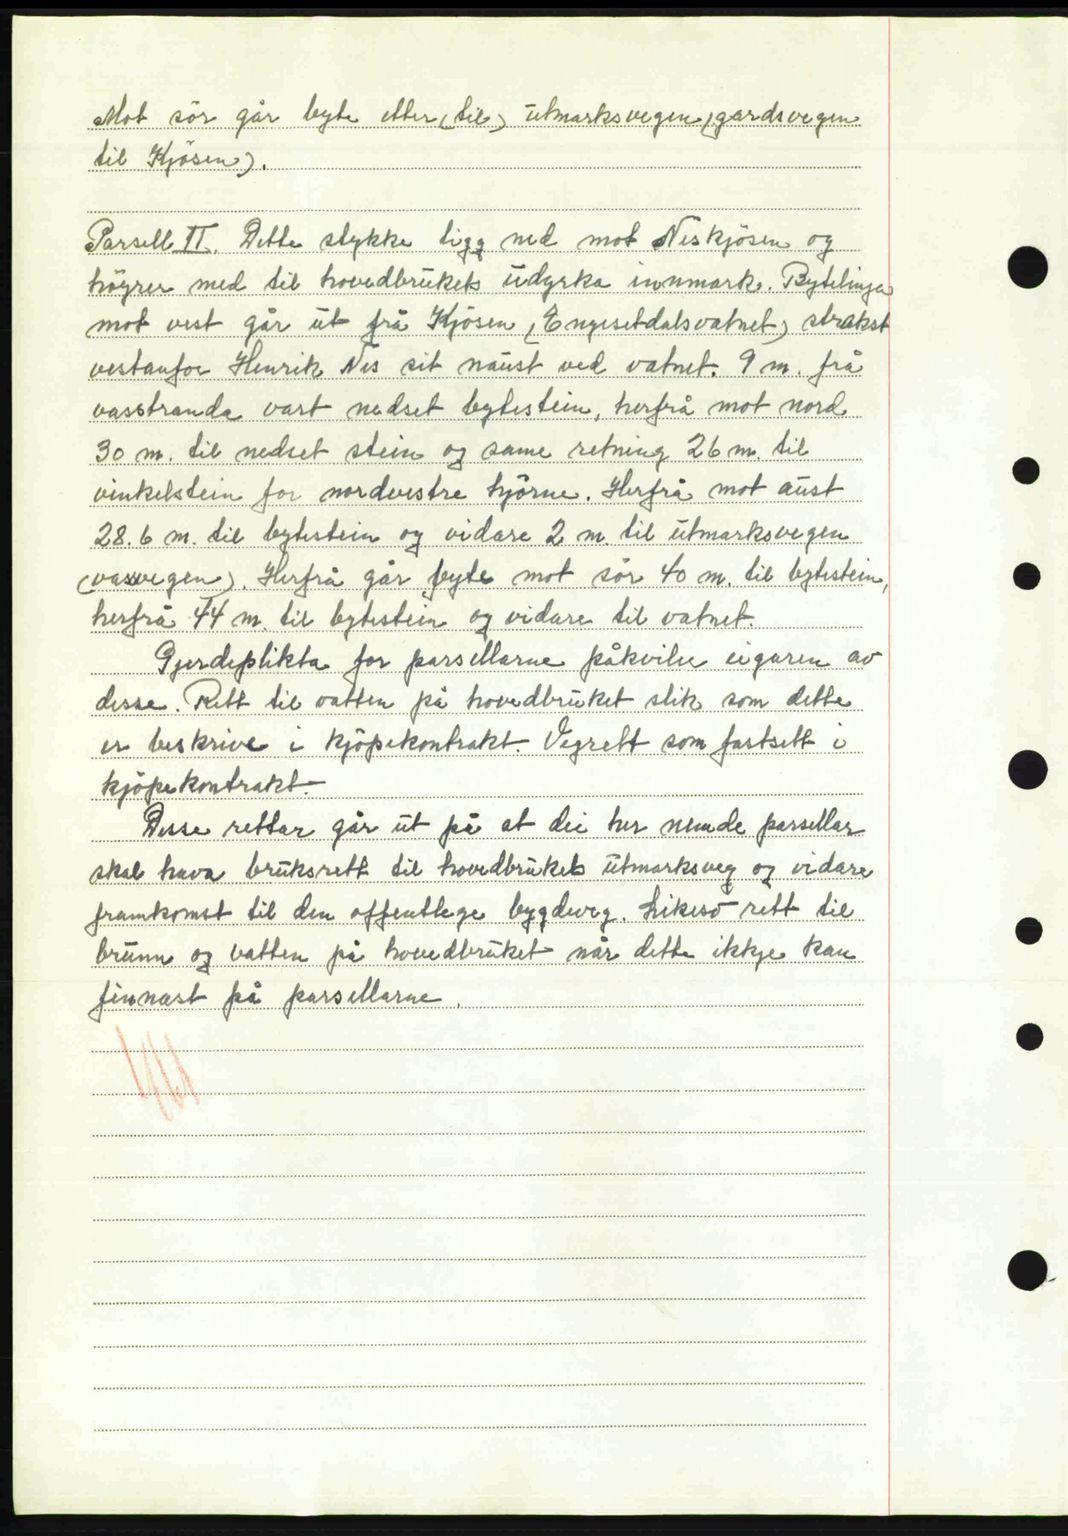 Mot sör går byte etter (til) utmarksvegen (gardsvegen
til Kjösen).
Parsell II. Dette stykke ligg ned mot Neskjösen og
höyrer med til hovedbrukets udyrka innmark. Bytelinja
mot vest går ut frå Kjösen (Engesetdalsvatnet) strakst
vestanfor Henrik Nes sit naust ved vatnet. 9 m. frå
vasstranda vart nedset bytestein, herfrå mot nord
30 m. til nedset stein og same retning 26 m. til
vinkelstein for nordvestre hjörne. Herfrå mot aust
28.6 m. til bytestein og vidare 2 m. til utmarksvegen
(vassvegen). Herfrå går byte mot sör 40 m. til bytestein,
herfrå 44 m. til bytestein og vidare til vatnet.
Gjerdeplikta for parsellarne påkviler eigaren av
desse. Rett til vatten på hovedbruket slik som dette
er beskrive i kjöpekontrakt. Vegrett som fastsett i
kjöpekontrakt.
Desse rettar går ut på at dei her nemde parsellar
skal hava bruksrett til hovedbrukets utmarksveg og vidare
framkomst til den offentlege bygdeveg. Likeso rett til
brunn og vatten på hovedbruket når dette ikkje kan
finnast på parsellarne.